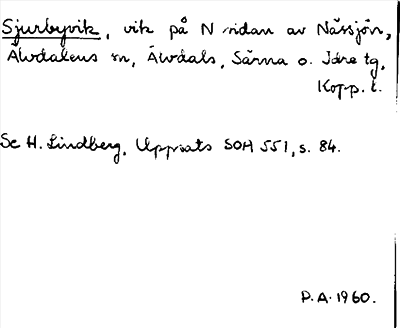 Sjurbyvik, vik på N sidan av Nässjön,
Älvdalens sn, Älvdals, Särna o. Idre tg,
Kopp. l.
Se H. Lindberg, Uppsats SOH 551, s. 84.
P.A. 1960.